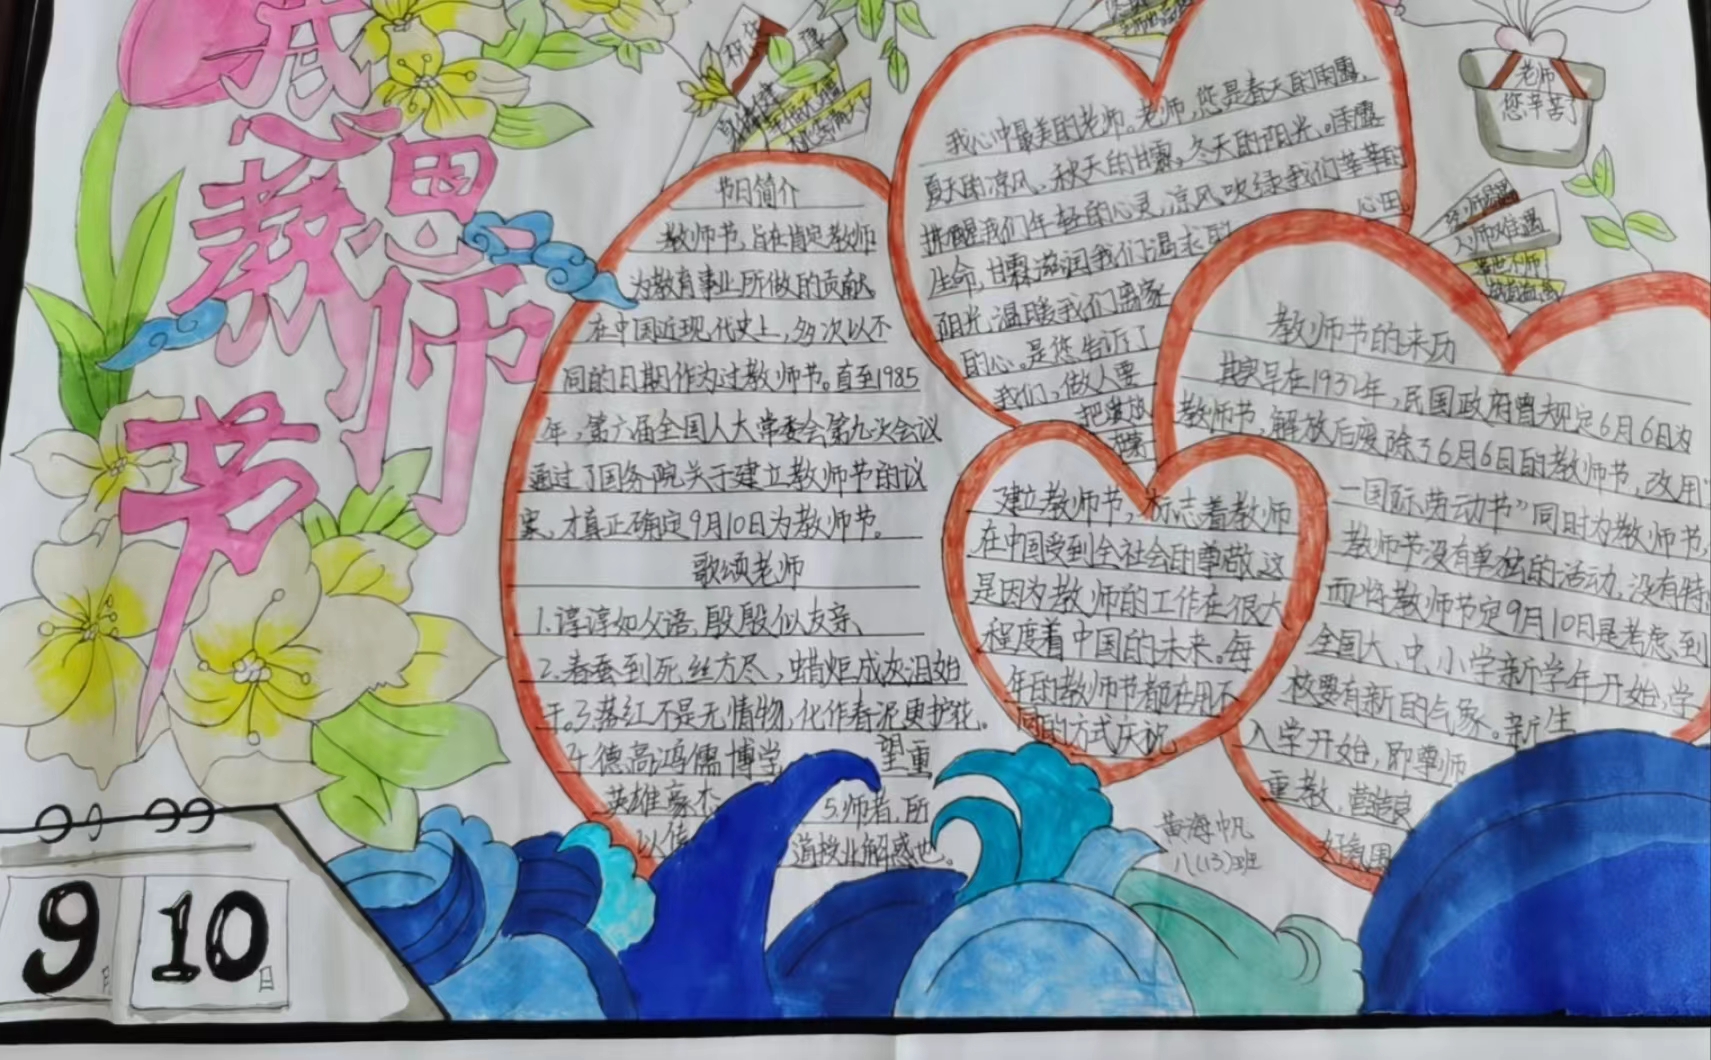 感恩
教师
节
节日简介
教师节,旨在肯定教师
为教育事业所做的贡献
在中国近现代史上,多次以不
同的日期作为过教师节。直至1985
年,第六届全国人大常委会第九次会议
通过了国务院关于建立教师节的议
案,才真正确定9月10日为教师节。
歌颂老师
1.谆谆如父语,殷殷似友亲
2.春蚕到死丝方尽,蜡炬成灰泪始
干。3.落红不是无情物,化作春泥更护花。
4.德高鸿儒博学 望重
英雄豪杰 5.师者,所
以传 道授业解惑也。
我心中最美的老师。老师,您是春天的雨露,
夏天的凉风、秋天的甘露,冬天的阳光。雨露
拼醒我们年轻的心灵,凉风吹绿我们莘莘的
心田。
生命,甘霖滋润我们渴求的
阳光温暖我们离家
的心。是您告诉了
我们,做人要
建立教师节,标志着教师
在中国受到全社会的尊敬。这
是因为教师的工作在很大
程度着中国的未来。每
年的教师节都在用不
同的方式庆祝
教师节的来历
其实早在1932年,民国政府曾规定6月6日为
教师节,解放后废除了6月6日的教师节,改用"
一国际劳动节"同时为教师节,
教师节没有单独的活动,没有特
而将教师节定9月10日是考虑到
全国大、中、小学新学年开始,学
校要有新的气象。新生
入学开始,即尊师
重教,营造良
好氛围
老师
您辛苦了
经师易遇
人师难遇
黄海帆
八(13)班
9月
10日